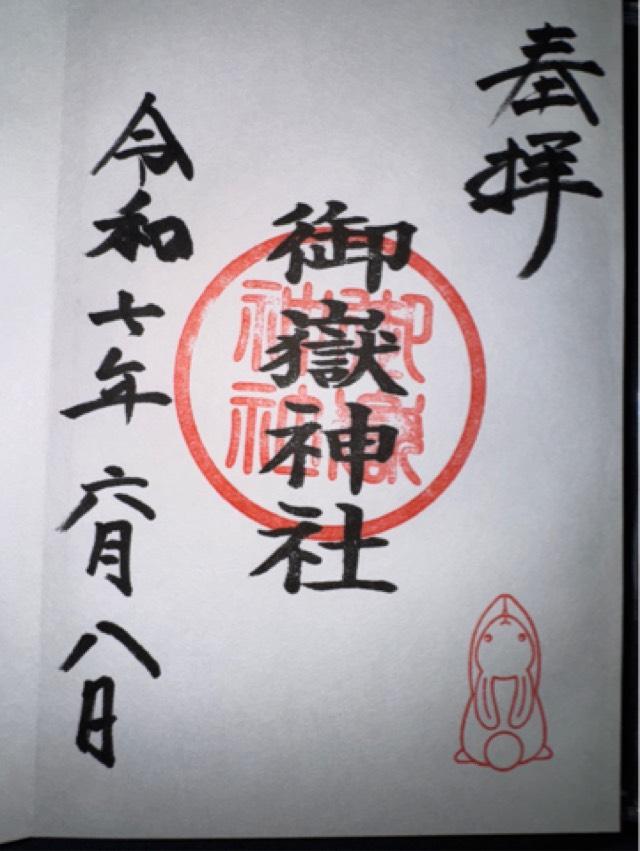 奉拝
御嶽神社
御嶽神社
令和七年六月八日